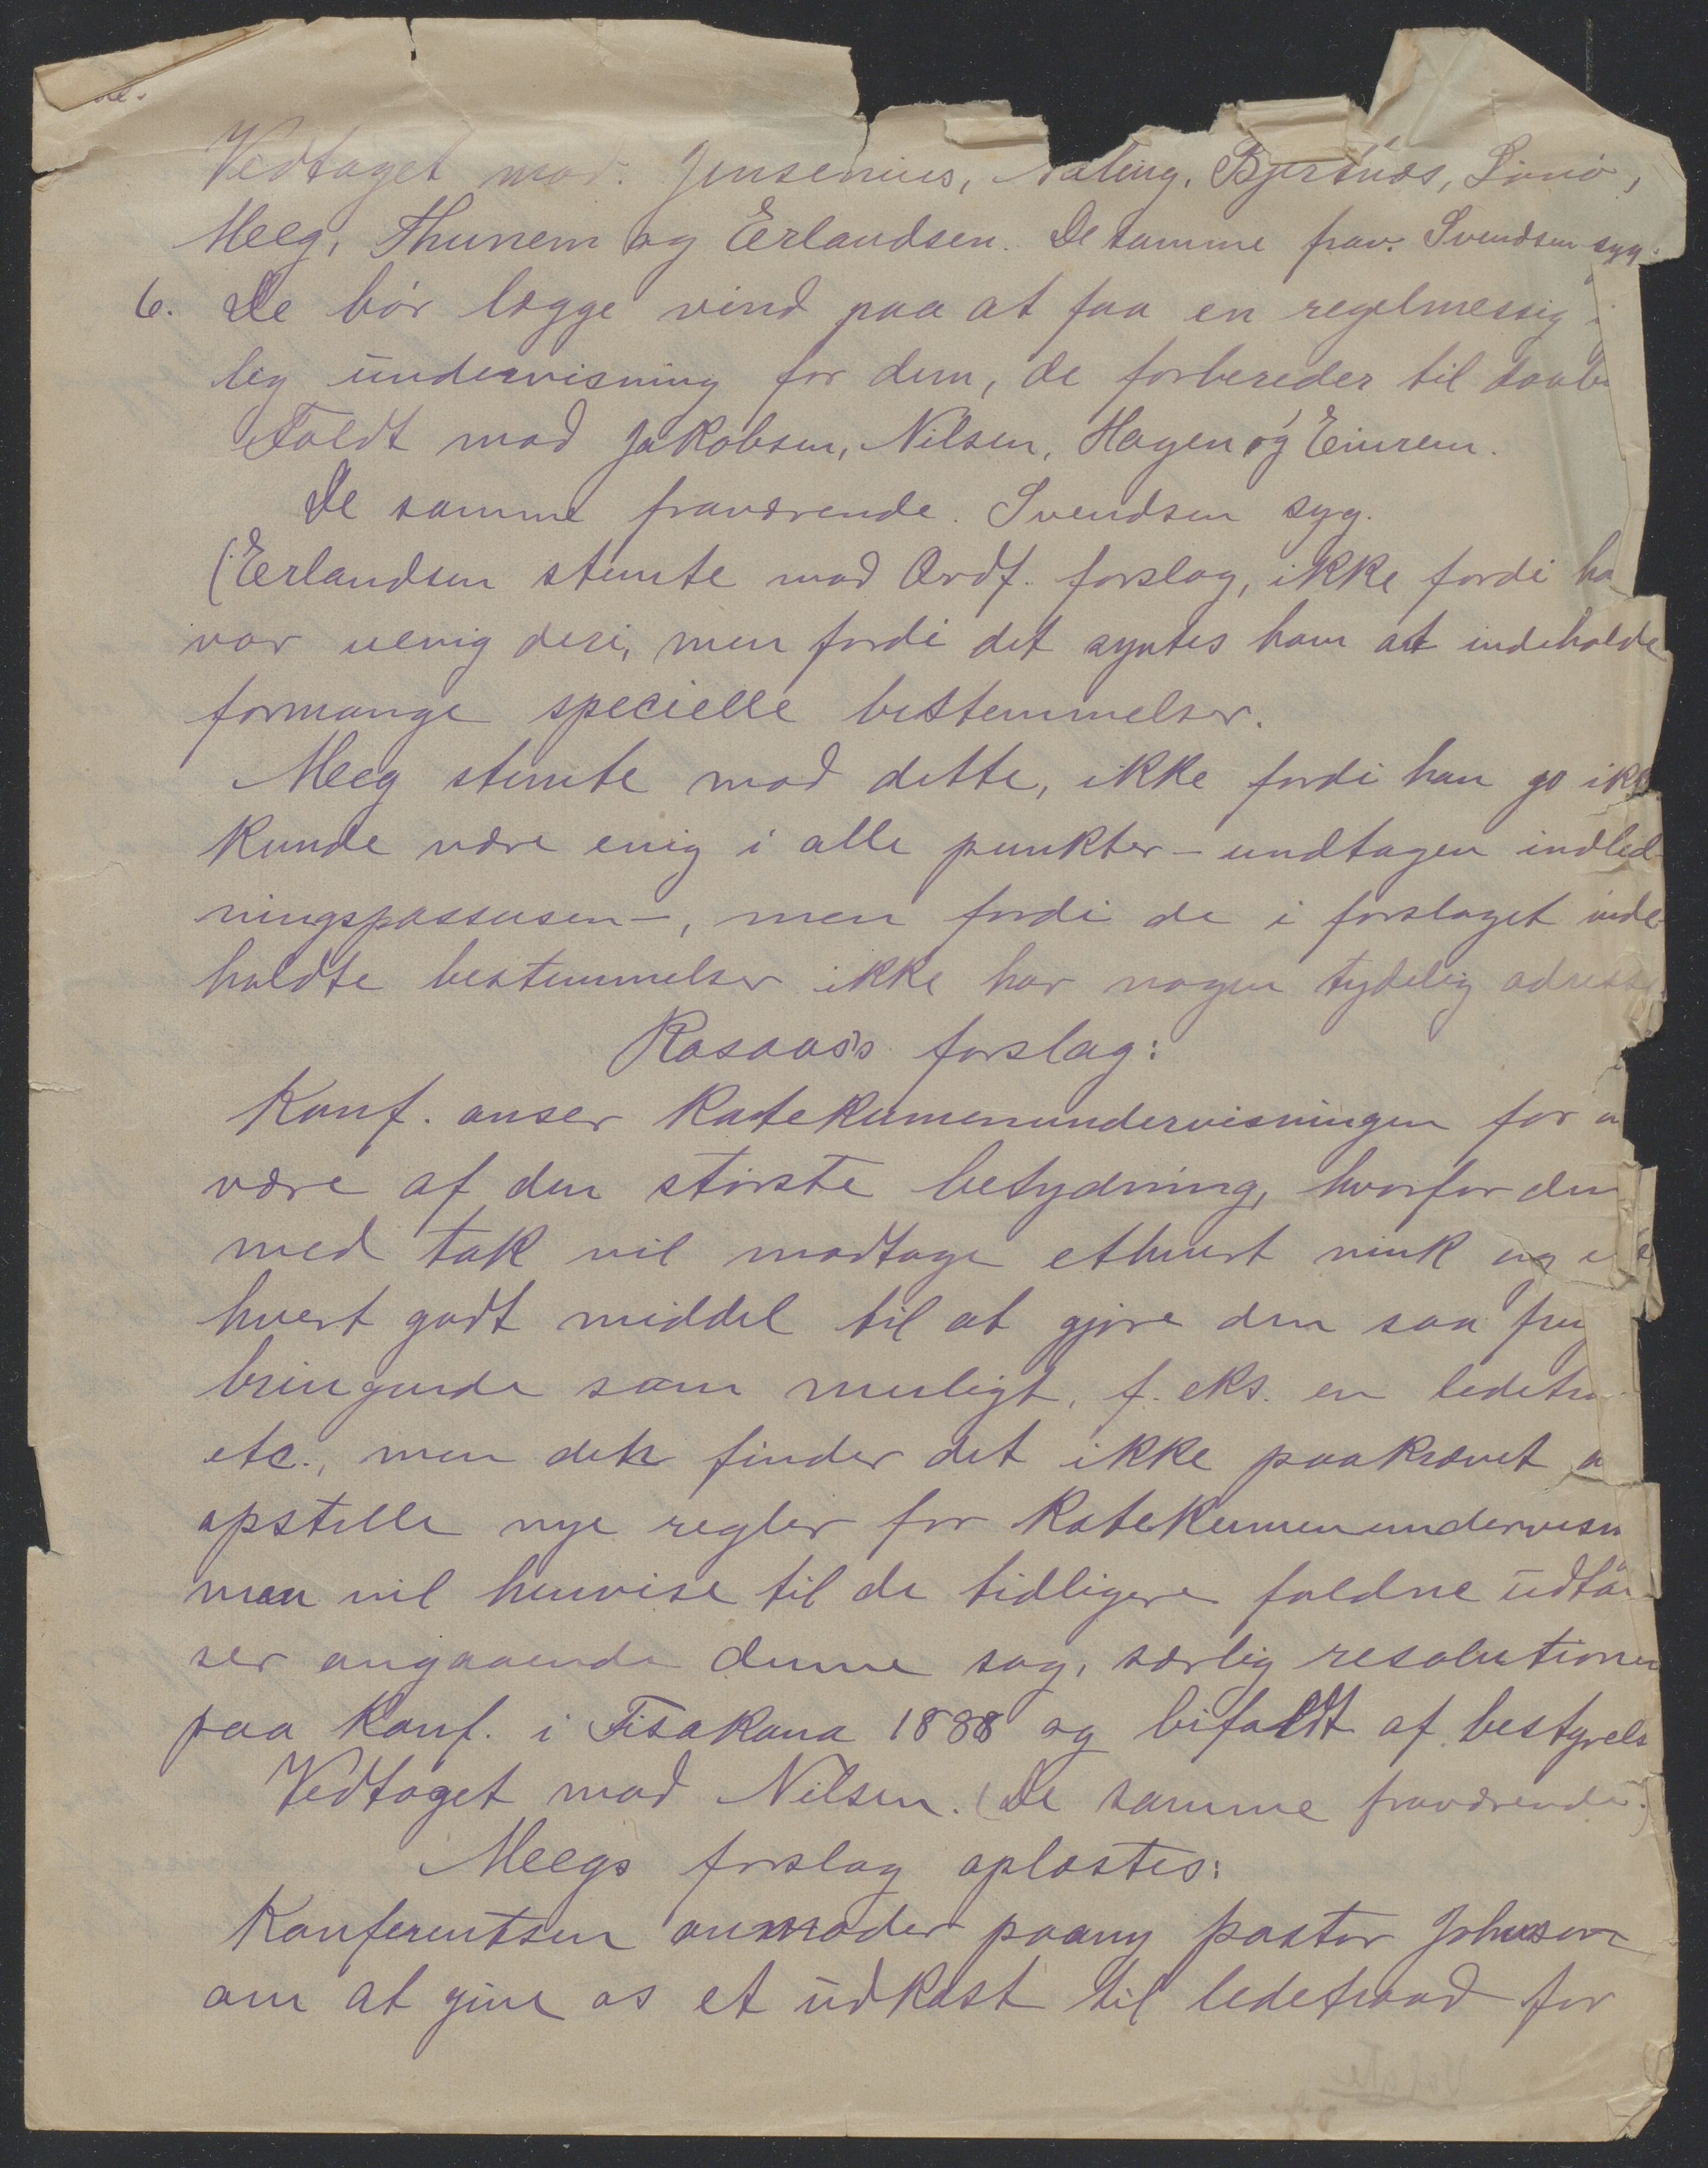 Vedtaget mod. Jensenius, Næting, Bjertnæs, Lönö,
Meeg, Thunem og Erlandsen. De samme frav. Svendsen syg.
6. De bör lægge vind paa at faa en regelmessig
lig undervisning for dem, de forbereder til daab
Faldt mod Jakobsen, Nilsen, Hagen og Einrem.
De samme fraværende. Svendsen syg.
(Erlandsen stemte mod Ordf. forslag, ikke fordi ha
var uenig deri, men fordi det syntes ham at indeholde
formange specielle bestemmelser.
Meeg stemte mod dette, ikke fordi han jo ikke
kunde være enig i alle punkter – undtagen indled-
ningspassusen –, men fordi de i forslaget inde-
holdte bestemmelser ikke har nogen tydelig adresse
Rosaas's forslag:
Konf. anser katekumenundervisningen for a
være af den störste betydning, hvorfor den
med tak vil modtage ethvert vink og et
hvert godt middel til at gjöre den saa frug
bringende som muligt, f. eks. en ledetra
etc., men den finder det ikke paakrævet a
opstille nye regler for katekumenundervisn
men vil henvise til de tidligere faldne udtal
ser angaaende denne sag, særlig resolutionen
paa Konf. i Fisakana 1888 og bifaldt af bestyrels
Vedtaget mod Nilsen. (De samme fraværende.)
Meegs forslag oplæstes:
Konferentsen anmoder paany pastor Johnson
om at give os et udkast til ledetraad for